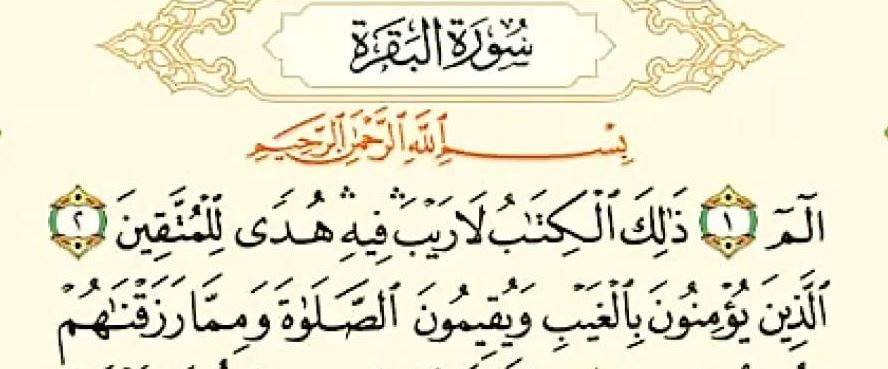 سُورَةُ البَقَرَةِ
بِسْمِ ٱللَّهِ ٱلرَّحْمَٰنِ ٱلرَّحِيمِ
الٓمٓ ١ ذَٰلِكَ ٱلْكِتَٰبُ لَا رَيْبَ ۛ فِيهِ ۛ هُدًى لِّلْمُتَّقِينَ ٢
ٱلَّذِينَ يُؤْمِنُونَ بِٱلْغَيْبِ وَيُقِيمُونَ ٱلصَّلَوٰةَ وَمِمَّا رَزَقْنَٰهُمْ